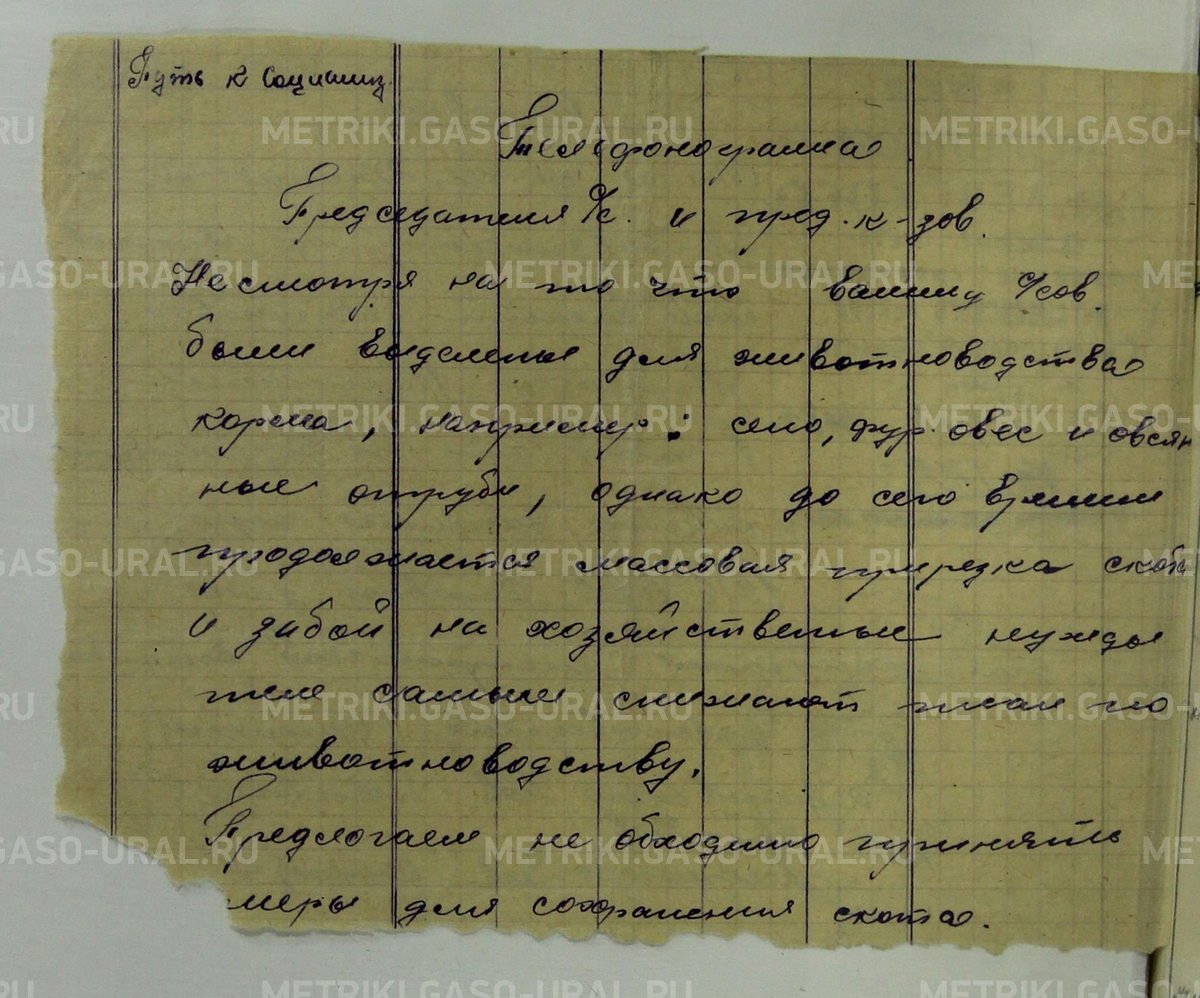 Путь к социализ.
Телефонограмма
Председателя с/с. и пред. к-зов.
Несмотря на то что вашим с/сов.
были выделены для животноводства
корма, например: сено, фур. овес и овсян
ные отруби, однако до сего времени
продолжается массовая прирезка скота
и забой на хозяйственные нужды
тем самым снижают план по
животноводству.
Предлогаем не обходимо принять
меры для сохранения скота.
METRIKI.GASO-URAL.RU